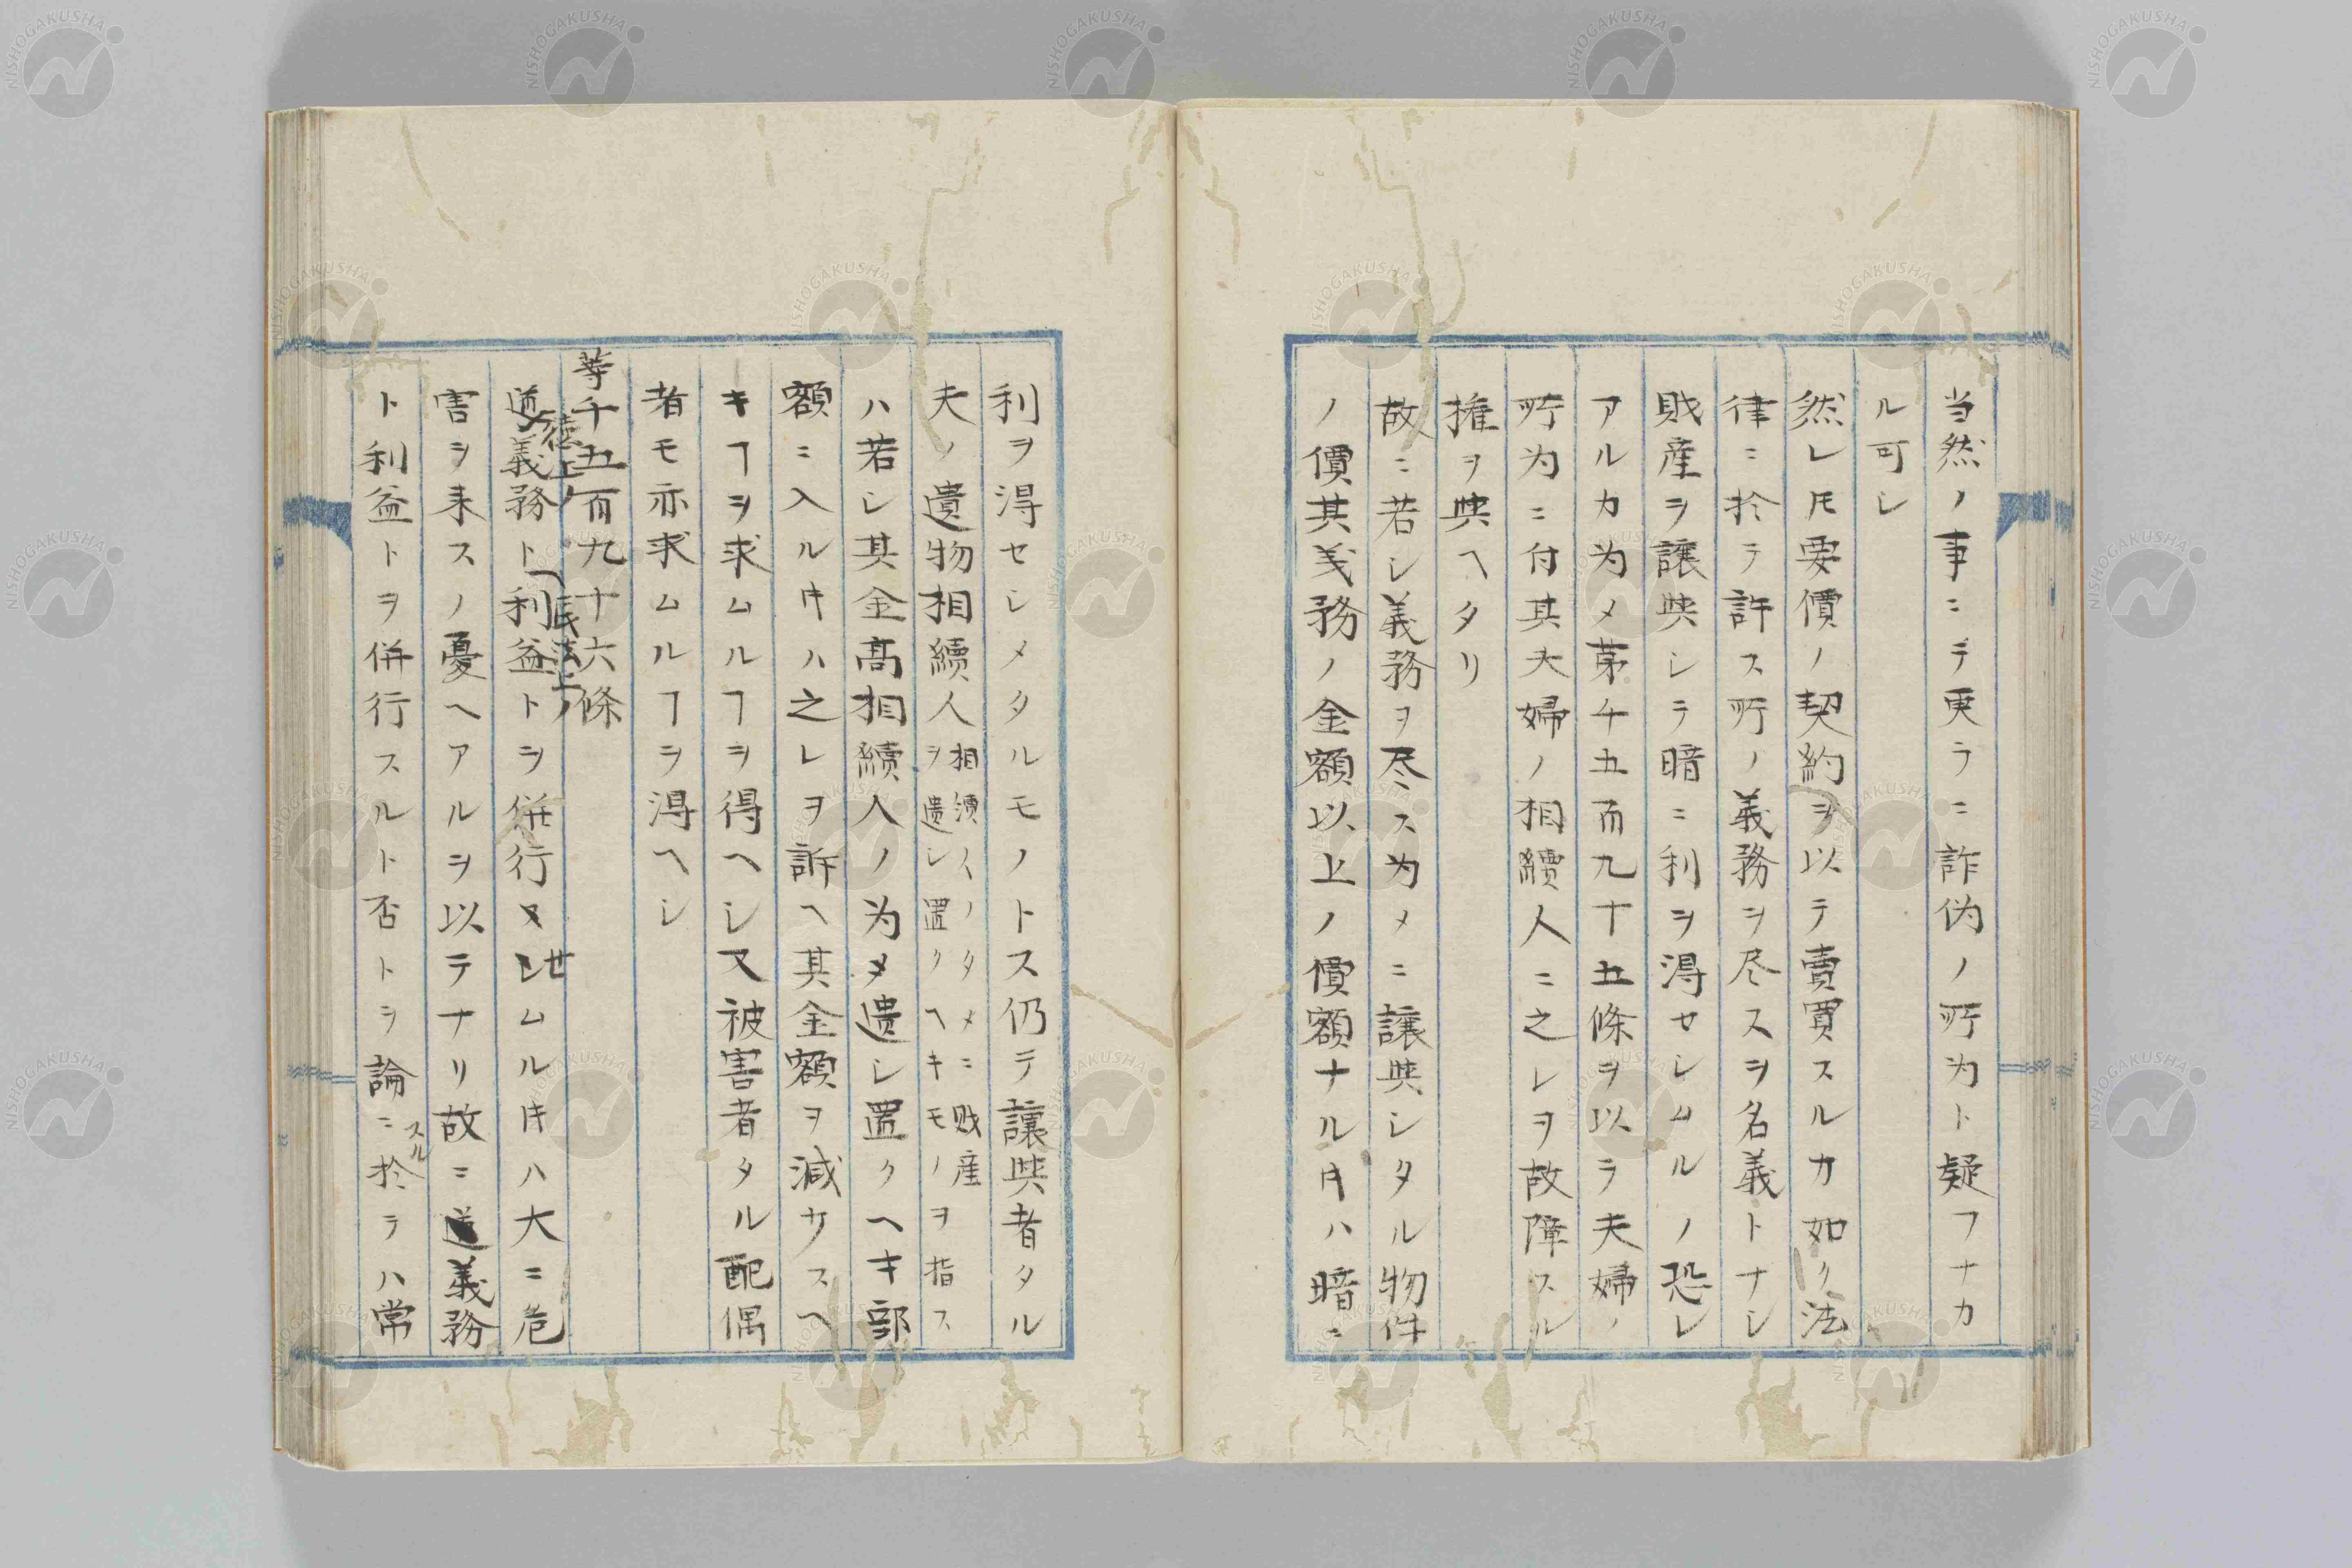 当然ノ事ニテ更ラニ詐偽ノ所為ト疑フナカ
ル可シ
然レ𪜈要價ノ契約ヲ以テ賣買スルカ如ク法
律ニ於テ許ス所ノ義務ヲ尽スヲ名義トナシ
財産ヲ譲與シテ暗ニ利ヲ得セシムルノ恐レ
アルカ為メ苐千五百九十五條ヲ以テ夫婦ノ
所為ニ付其夫婦ノ相續人ニ之レヲ故障スル
権ヲ與ヘタリ
故ニ若シ義務ヲ尽ス為メニ譲與シタル物件
ノ價其義務ノ金額以上ノ價額ナル𪜈ハ暗ニ
利ヲ得セシメタルモノトス仍テ譲與者タル
夫ノ遺物相續人相續人ノタメニ財産ヲ遺シ置クヘキモノヲ指ス
ハ若シ其金高相續人ノ為メ遺シ置クヘキ部
額ニ入ル𪜈ハ之レヲ訴ヘ其金額ヲ減サスヘ
キヿヲ求ムルヿヲ得ヘシ又被害者タル配偶
者モ亦求ムルヿヲ得ヘシ
苐千五百九十六條
道徳上ノ義務ト民法上ノ利益トヲ併行セシムル𪜈ハ大ニ危
害ヲ来スノ憂ヘアルヲ以テナリ故ニ義務
ト利益トヲ併行スルト否トヲ論スルニ於テハ常
NISHOGAKUSHA